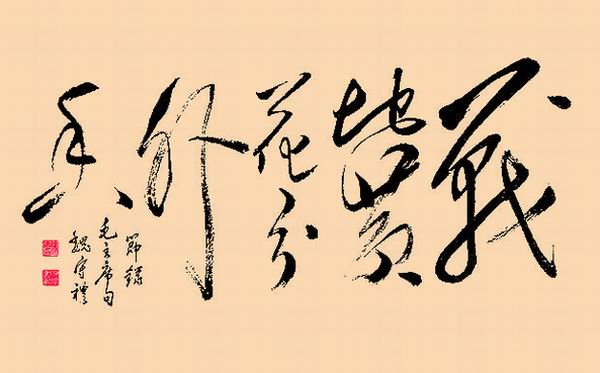 戰
地黃
花分
外
香
節錄
毛主席句
魏守禮